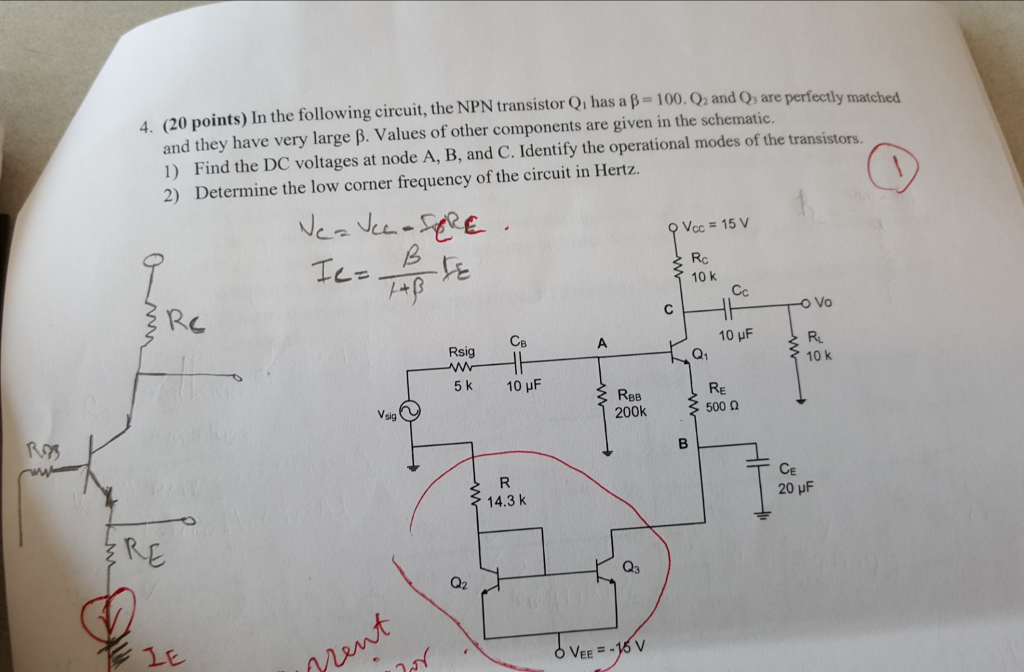 4. (20 points) In the following circuit, the NPN transistor Q1 has a β = 100. Q2 and Q3 are perfectly matched
and they have very large β. Values of other components are given in the schematic.
1) Find the DC voltages at node A, B, and C. Identify the operational modes of the transistors.
2) Determine the low corner frequency of the circuit in Hertz.
1
Vc = Vcc -
Ic = β/1+β IE
Vcc = 15 V
Rc
10 k
Cc
C
Vo
10 μF
RL
10 k
Rc
Rsig
CB
A
Q1
5 k
10 μF
RBB
200k
RE
500 Ω
Vsig
RBB
B
CE
20 μF
R
14.3 k
RE
Q2
Q3
IE
VEE = -15 V